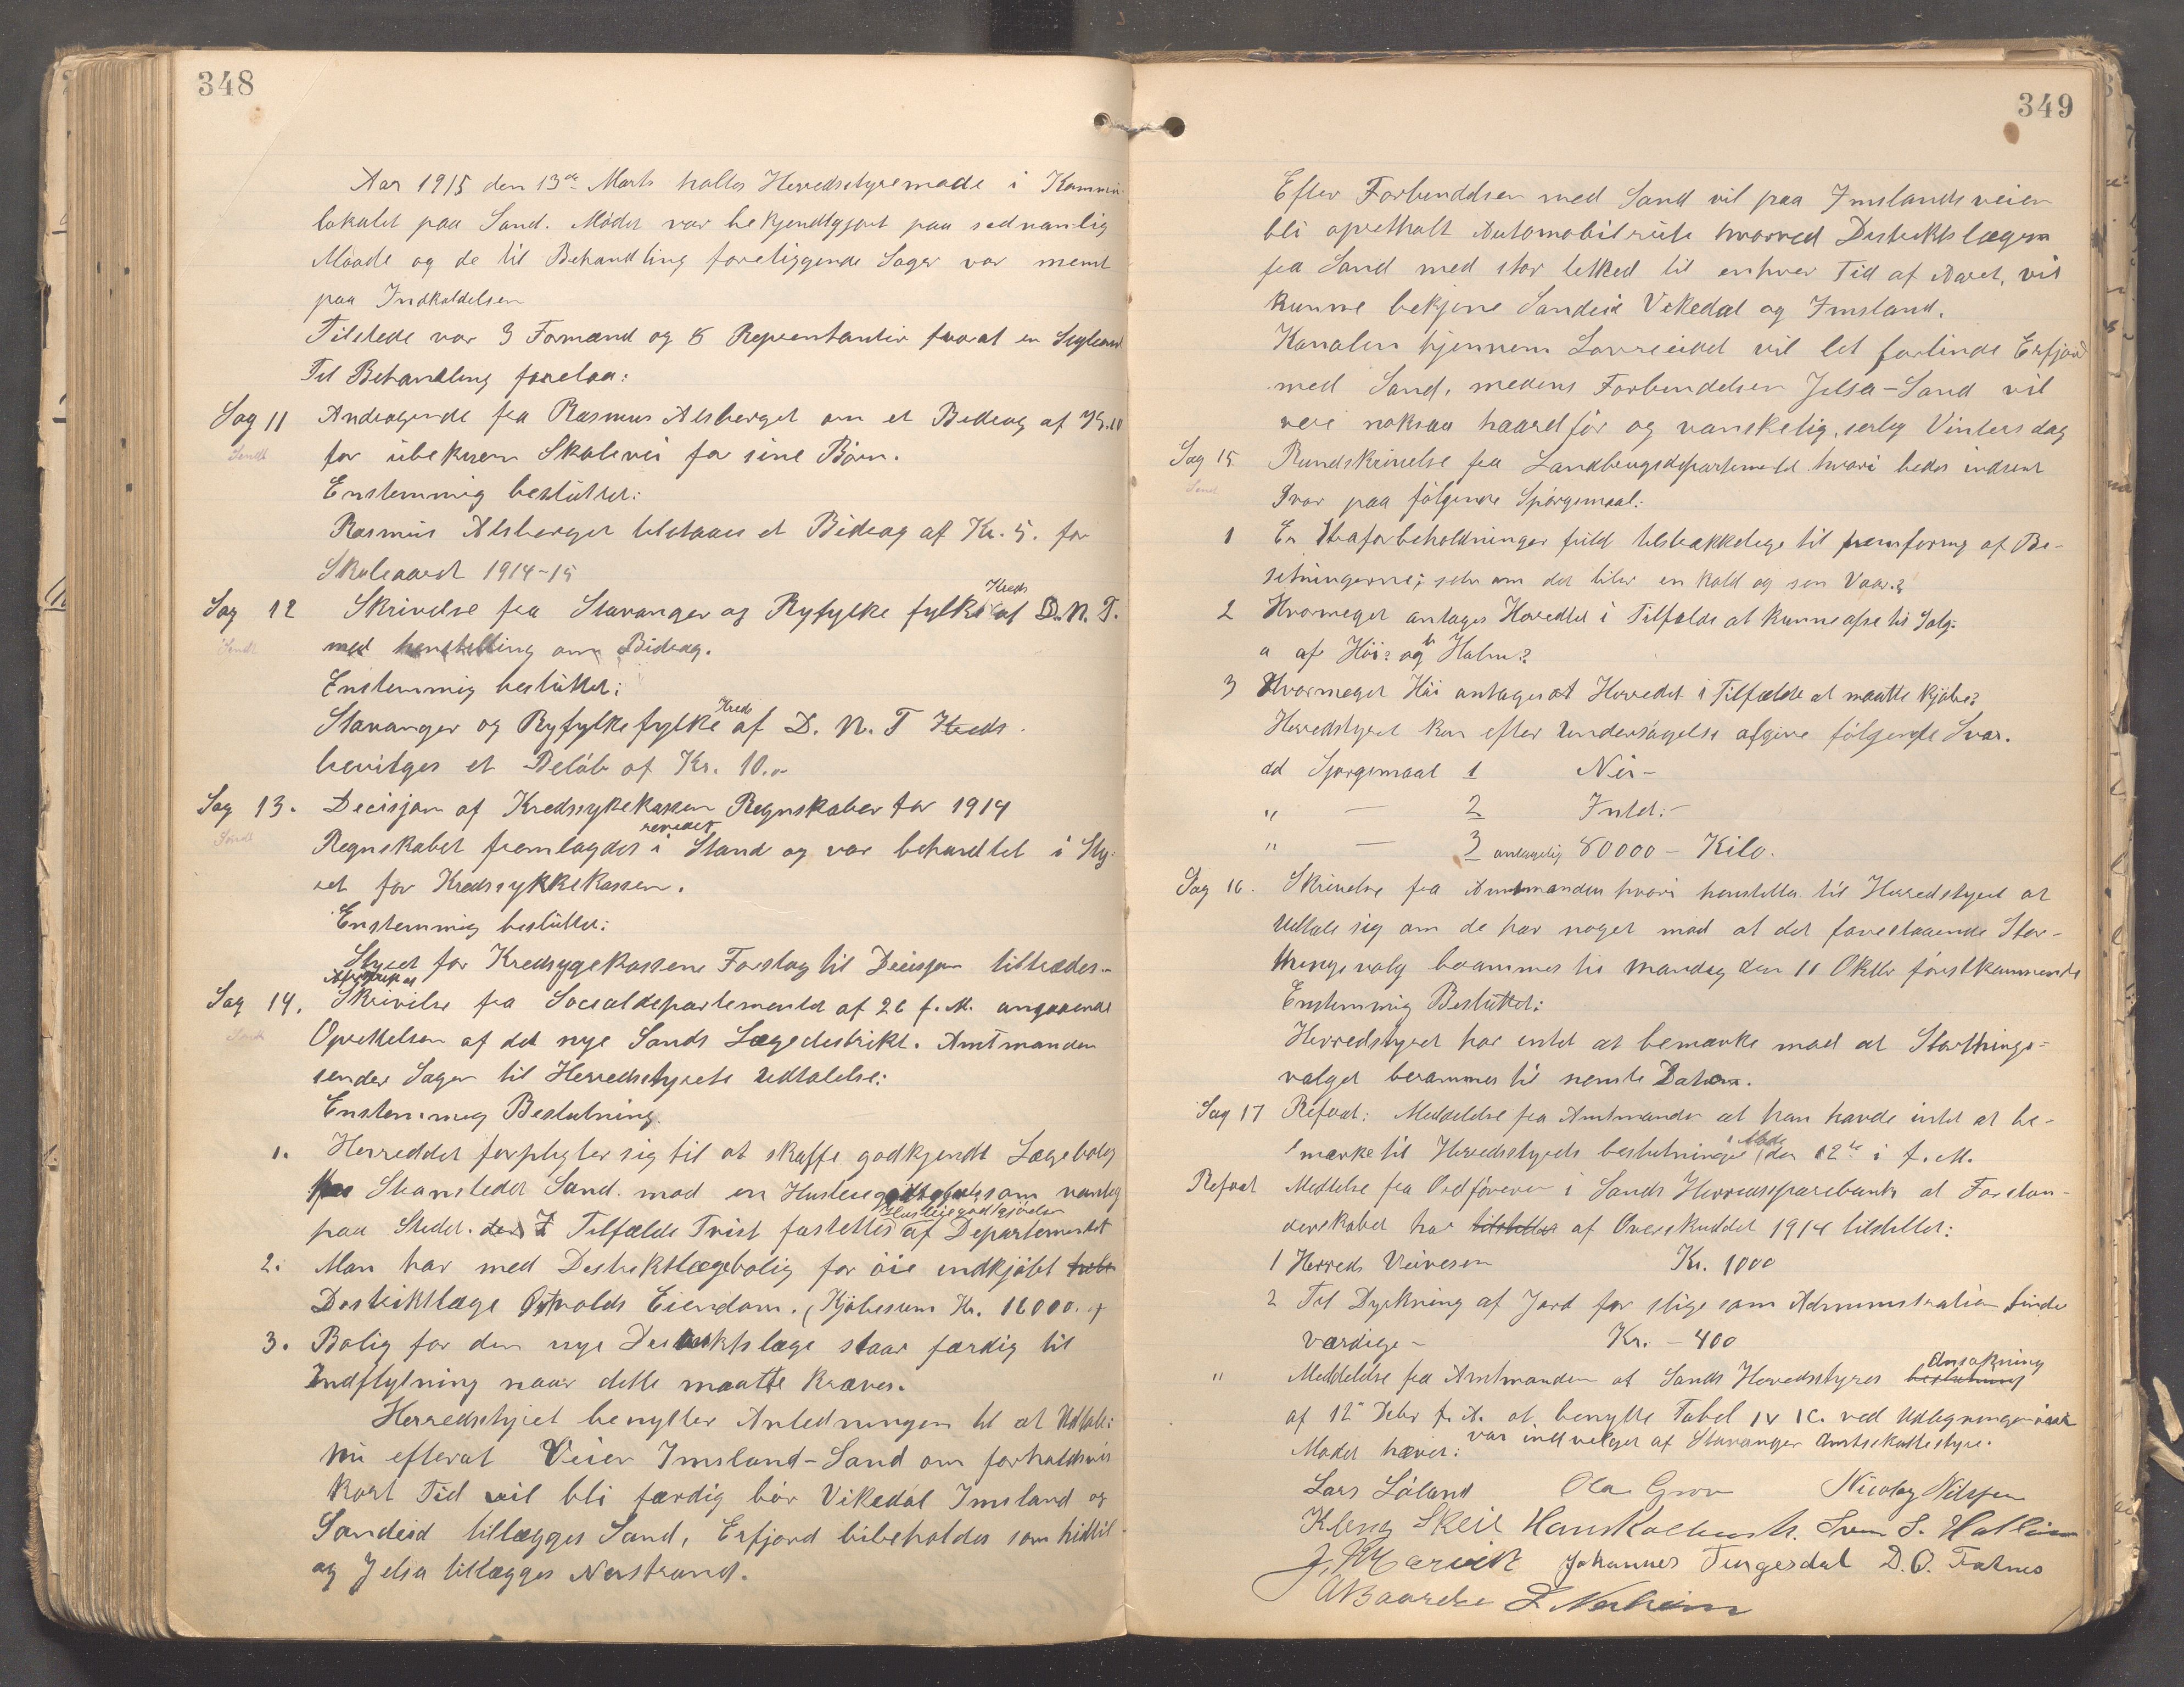 348
Aar 1915 den 13de Marts holtes Herredsstyremøde i Kommu
lokalet paa Sand. Mødet var bekjendtgjort paa sedvanlig
Maade og de til Behandling foreliggende Sager var nevnt
paa Indkaldelsen
Tilstede var 3 Formænd og 8 Representanter hvorat en
Til Behandling forelaa:
Sag 11 Andragende fra Rasmus Alsberget om et Bidrag af Kr. 10
Sendt
for ubekvem Skolevei for sine Børn.
Enstemmig besluttet:
Rasmus Alsberget tilstaaes et Bidrag af Kr. 5. for
Skoleaaret 1914-15
Sag 12 Skrivelse fra Stavanger og Ryfylke fylkes Kreds af D. N. T.
Sendt
med henstilling om Bidrag.
Enstemmig besluttet:
Stavanger og Ryfylke fylke Kreds af D. N. T Kreds
bevilges et Beløb af Kr. 10.00
Sag 13. Decisjon af Kredssykekassen Regnskaber for 1914
Sendt
Regnskabet fremlagdes i revidert Stand og var behandlet i Sty-
ret for Kredssykkekassen.
Enstemmig besluttet:
Styret for Kredsygekassens Forslag til Decisjon tiltrædes.
Afskrift af
Sag 14. Skrivelse fra Socialdepartementet af 26 f. M. angaaende
Sendt
Oprettelsen af det nye Sands Lægedistrikt. Amtmanden
sender Sagen til Herredsstyrets Udtalelse:
Enstemmig Beslutning.
1. Herreddet forpligter sig til at skaffe godkjendt Lægebolig
paa Strandstedet Sand. mod en Husleiegodtgjørelse som vanlig
paa Stedet. I Tilfælde Tvist fastsettes Husleiegodtgjørelse af Departementet
2. Man har med Distriktslægebolig for øie indkjøbt
Distriktlæge Eiendom. (Kjøbesum Kr. 16000.)
3. Bolig for den nye Distriktslæge staar færdig til
Indflytning naar dette maatte kræves.
Herredsstyret benytter Anledningen til at Udtale:
nu efterat Veien Imsland-Sand om forholdsvis
kort Tid vil bli færdig bør Vikedal Imsland og
Sandeid tillægges Sand, Erfjord bibeholdes som hidtil
og Jelsa tillægges Nerstrand.
349
Efter Forbinddelsen med Sand vil paa Imslandsveien
bli oprethalt Automobilrute hvorved Distriktslægen
fra Sand med stor letthed til enhver Tid af Aaret, vil
kunne betjene Sandeid Vikedal og Imsland.
Kanalen gjennem Lovreeidet vil let forbinde Erfjord
med Sand, medens Forbindelsen Jelsa-Sand vil
være noksaa haardfør og vanskelig, serlig Vintersdag
Sag 15. Rundskrivelse fra Landbrugsdepartementet hvori bedes indsent
Sendt
Svar paa følgende Spørgsmaal:
1 Er Straaforbeholdninger fuld tilstrækkelige til fremforing af Be-
setningerne, selv om det blir en kold og sen Vaar?
2 Hvormeget antages Herredet i Tilfælde at kunne afse til Salg.
a af Høi? og b Halm?
3 Hvormeget Høi antages at Herredet i Tilfælde at maatte kjøbe?
Herredstyret kan efter Undersøgelse afgive følgende Svar.
ad Spørgsmaal 1 Nei -
" — 2 Intet: -
" — 3 antagelig 80000 - Kilo.
Sag 16. Skrivelse fra Amtmanden hvori henstilles til Herredstyret at
Udtale sig om de har noget mod at det forestaaende Stor-
thingsvalg berammes til Mandag den 11 Oktbr førstkommende
Enstemmig Besluttet:
Herredstyret har intet at bemærke mod at Storthings-
valget berammes til nevnte Datum.
Sag 17 Referat: Meddelelse fra Amtmanden at han havde intet at be-
mærke til Herredsstyrets beslutninger i Møde den 12te i f. M.
Referat Meddelse fra Ordføreren i Sands Herredssparebank at Forstan-
derskabet har tilstillet af Overskuddet 1914 tilstillet:
1 Herreds Veivesen Kr. 1000
2 Til Dyrkning af Jord for slige som Administration finder
værdige - Kr. - 400
" Meddelelse fra Amtmanden at Sands Herredsstyres beslutning Ansøkning
af 12te Debr f. A. at benytte Tabel IV IC. ved Udlegningen iaar
var indvelget af Stavanger Amtsskattestyre.
Mødet hævet:
Lars Løland Ola Grov Nicolay Nilssen
Kleng Skeie Svein S. Hallin
Johannes Tengesdal D. O. Fatnes